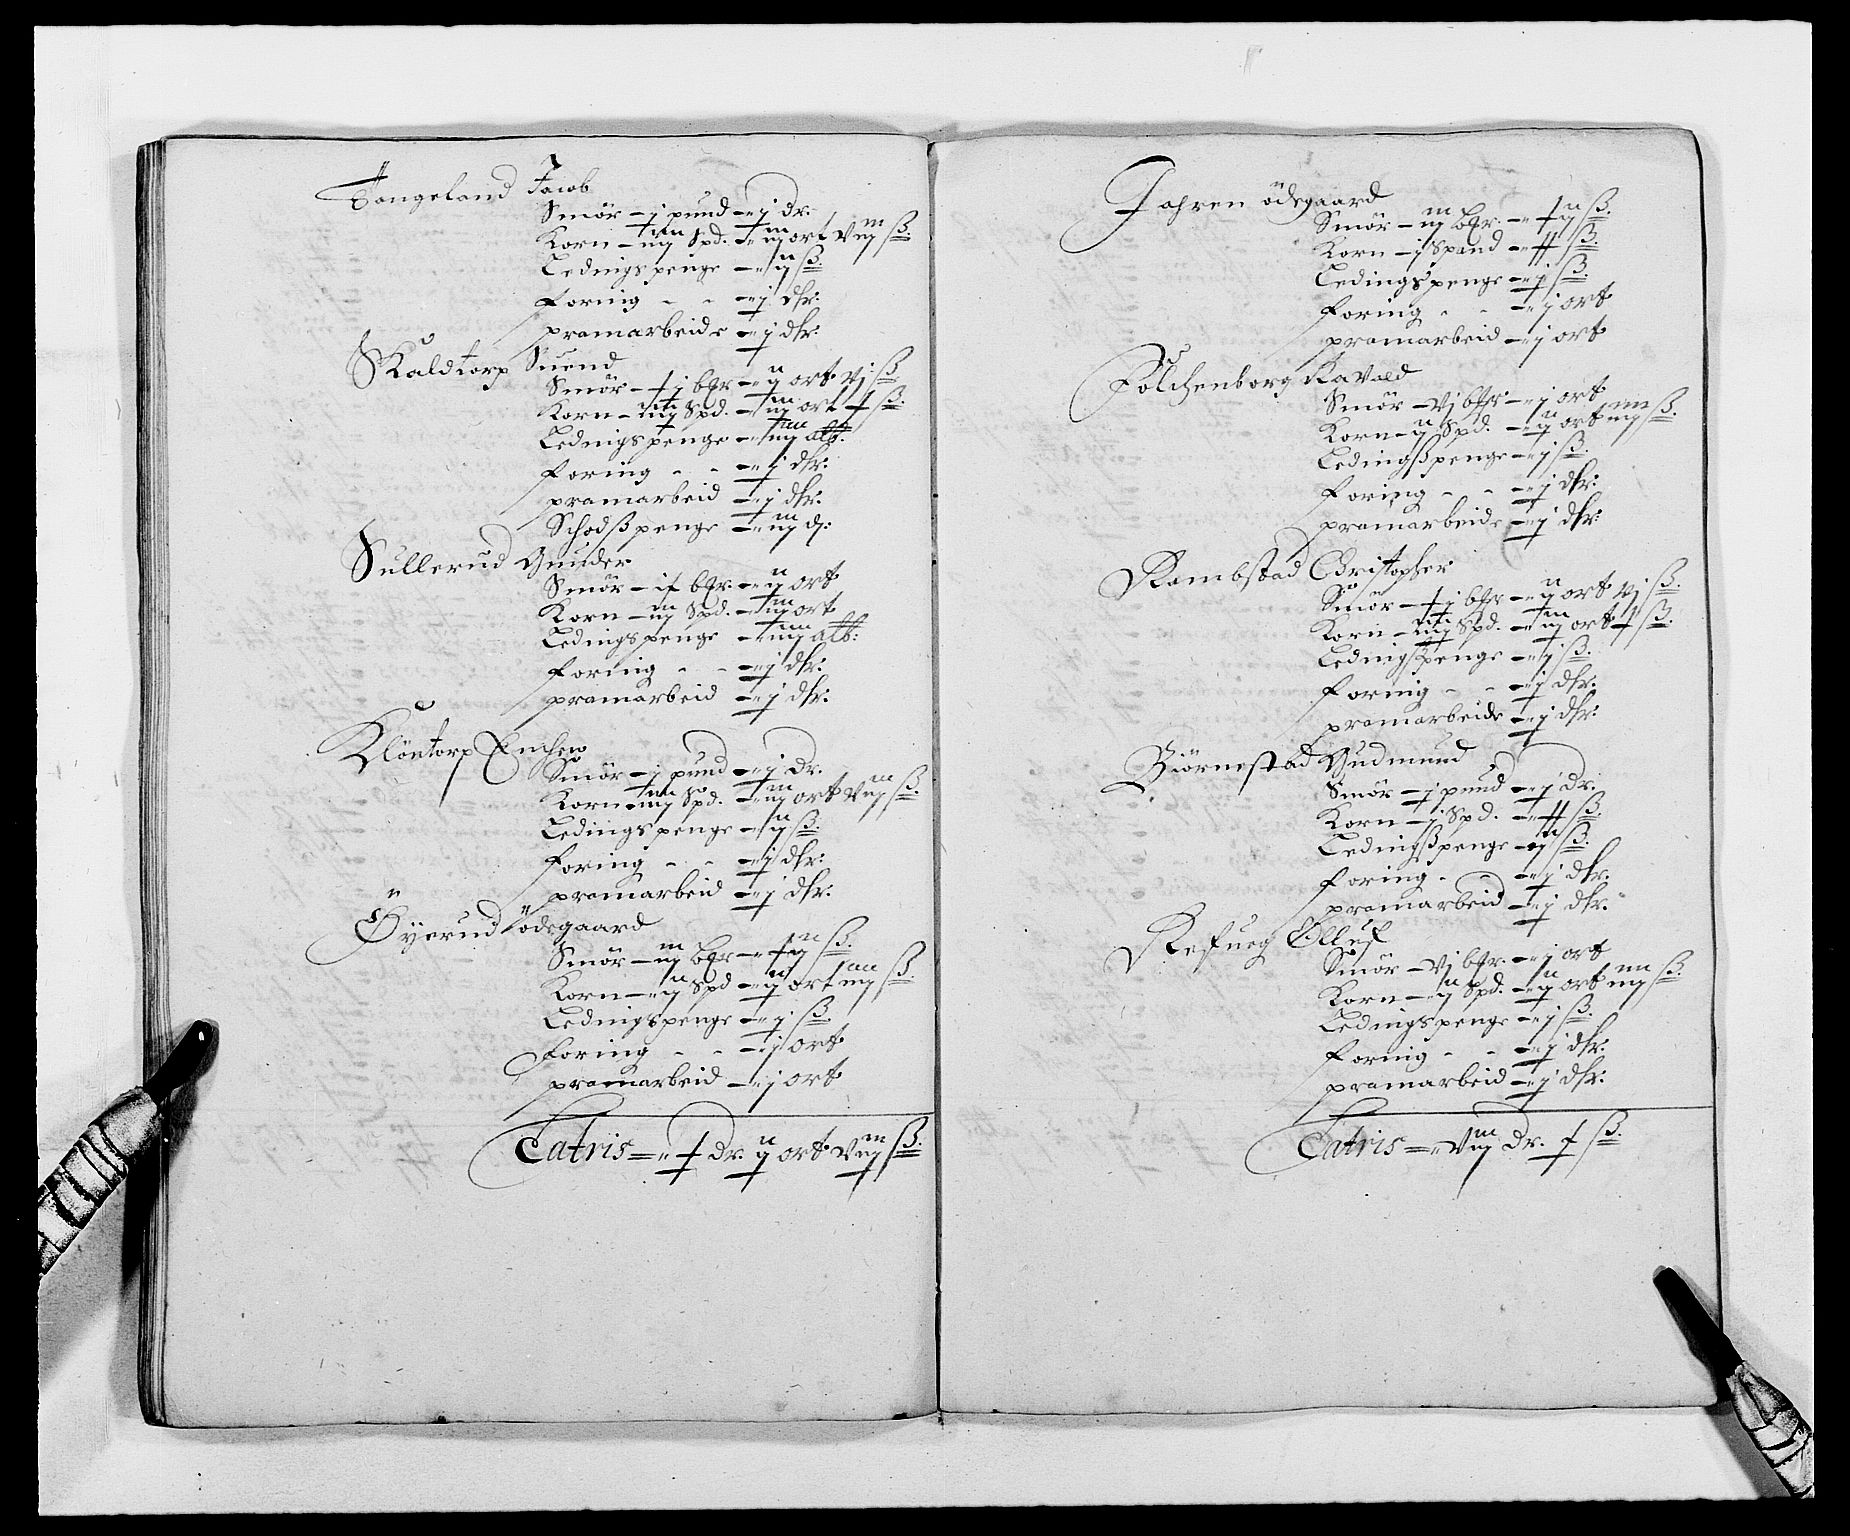 Tangeland Jacob
Smör - j pund - j dr.
Korn - iiij Spd. - iij ort viij ß.
Ledingspenge - ij ß
foring - - j dlr:
pramarbeide - j dlr:
Skaldtorp Suend
Smör - j bßr - ij ort vj ß
Korn - iiij Spd. - iij ort ß.
Ledingspenge - iiij alb:
foring - - j dlr:
pramarbeid - j dlr:
Schodßpenge - iij d:
Sullerud Gunder
Smör - bßr. - ij ort
Korn - iij Spd. - iij ort
Ledingspenge - iiij alb:
foring - - j dlr:
pramarbeid - j dlr:
Klöntorp Enchen
Smör - j pund - j dr.
Korn - iiij Spd. - iij ort viij ß.
Ledingspenge - ij ß.
foring - - j dlr:
pramarbeid - j dlr:
Öyerud ödegaard
Smör - iij bßr - ß.
Korn - ij Spd - ij ort iiij ß.
Ledingspenge - j ß.
foring - - j ort
pramarbeid - j ort
Latris = dr. ij ort viij ß.
Jahren ödegaard
Smör - iij bßr. - ß.
Korn - j Spand - ß.
Ledingspenge - j ß.
foring - - j ort
pramarbeid - j ort
Folchenborg Kavald
Smör - vj bßr - j ort
Korn - ij Spd. - ij ort iiij ß.
Ledingßpenge - j ß.
foring - - j dlr:
pramarbeide - j dlr:
Rambstad Christopher
Smör - j bßr - ij ort vj ß.
Korn - iiij Spd. - iij ort ß.
Ledingßpenge - j ß.
foring - - j dlr.
pramarbeide - j dlr:
Biörnestad Gudmund
Smör - j pund - j dr.
Korn - j Spd. - ß.
Ledingßpenge - ij ß.
foring - - j dlr.
pramarbeid - j dlr.
Refueg Olluf
Smör - vj bßr. - j ort
Korn - ij Spd. - ij ort iiij ß.
Ledingspenge - j ß.
foring - - j dlr.
pramarbeid - j dlr:
Latris = viij dr. ß.